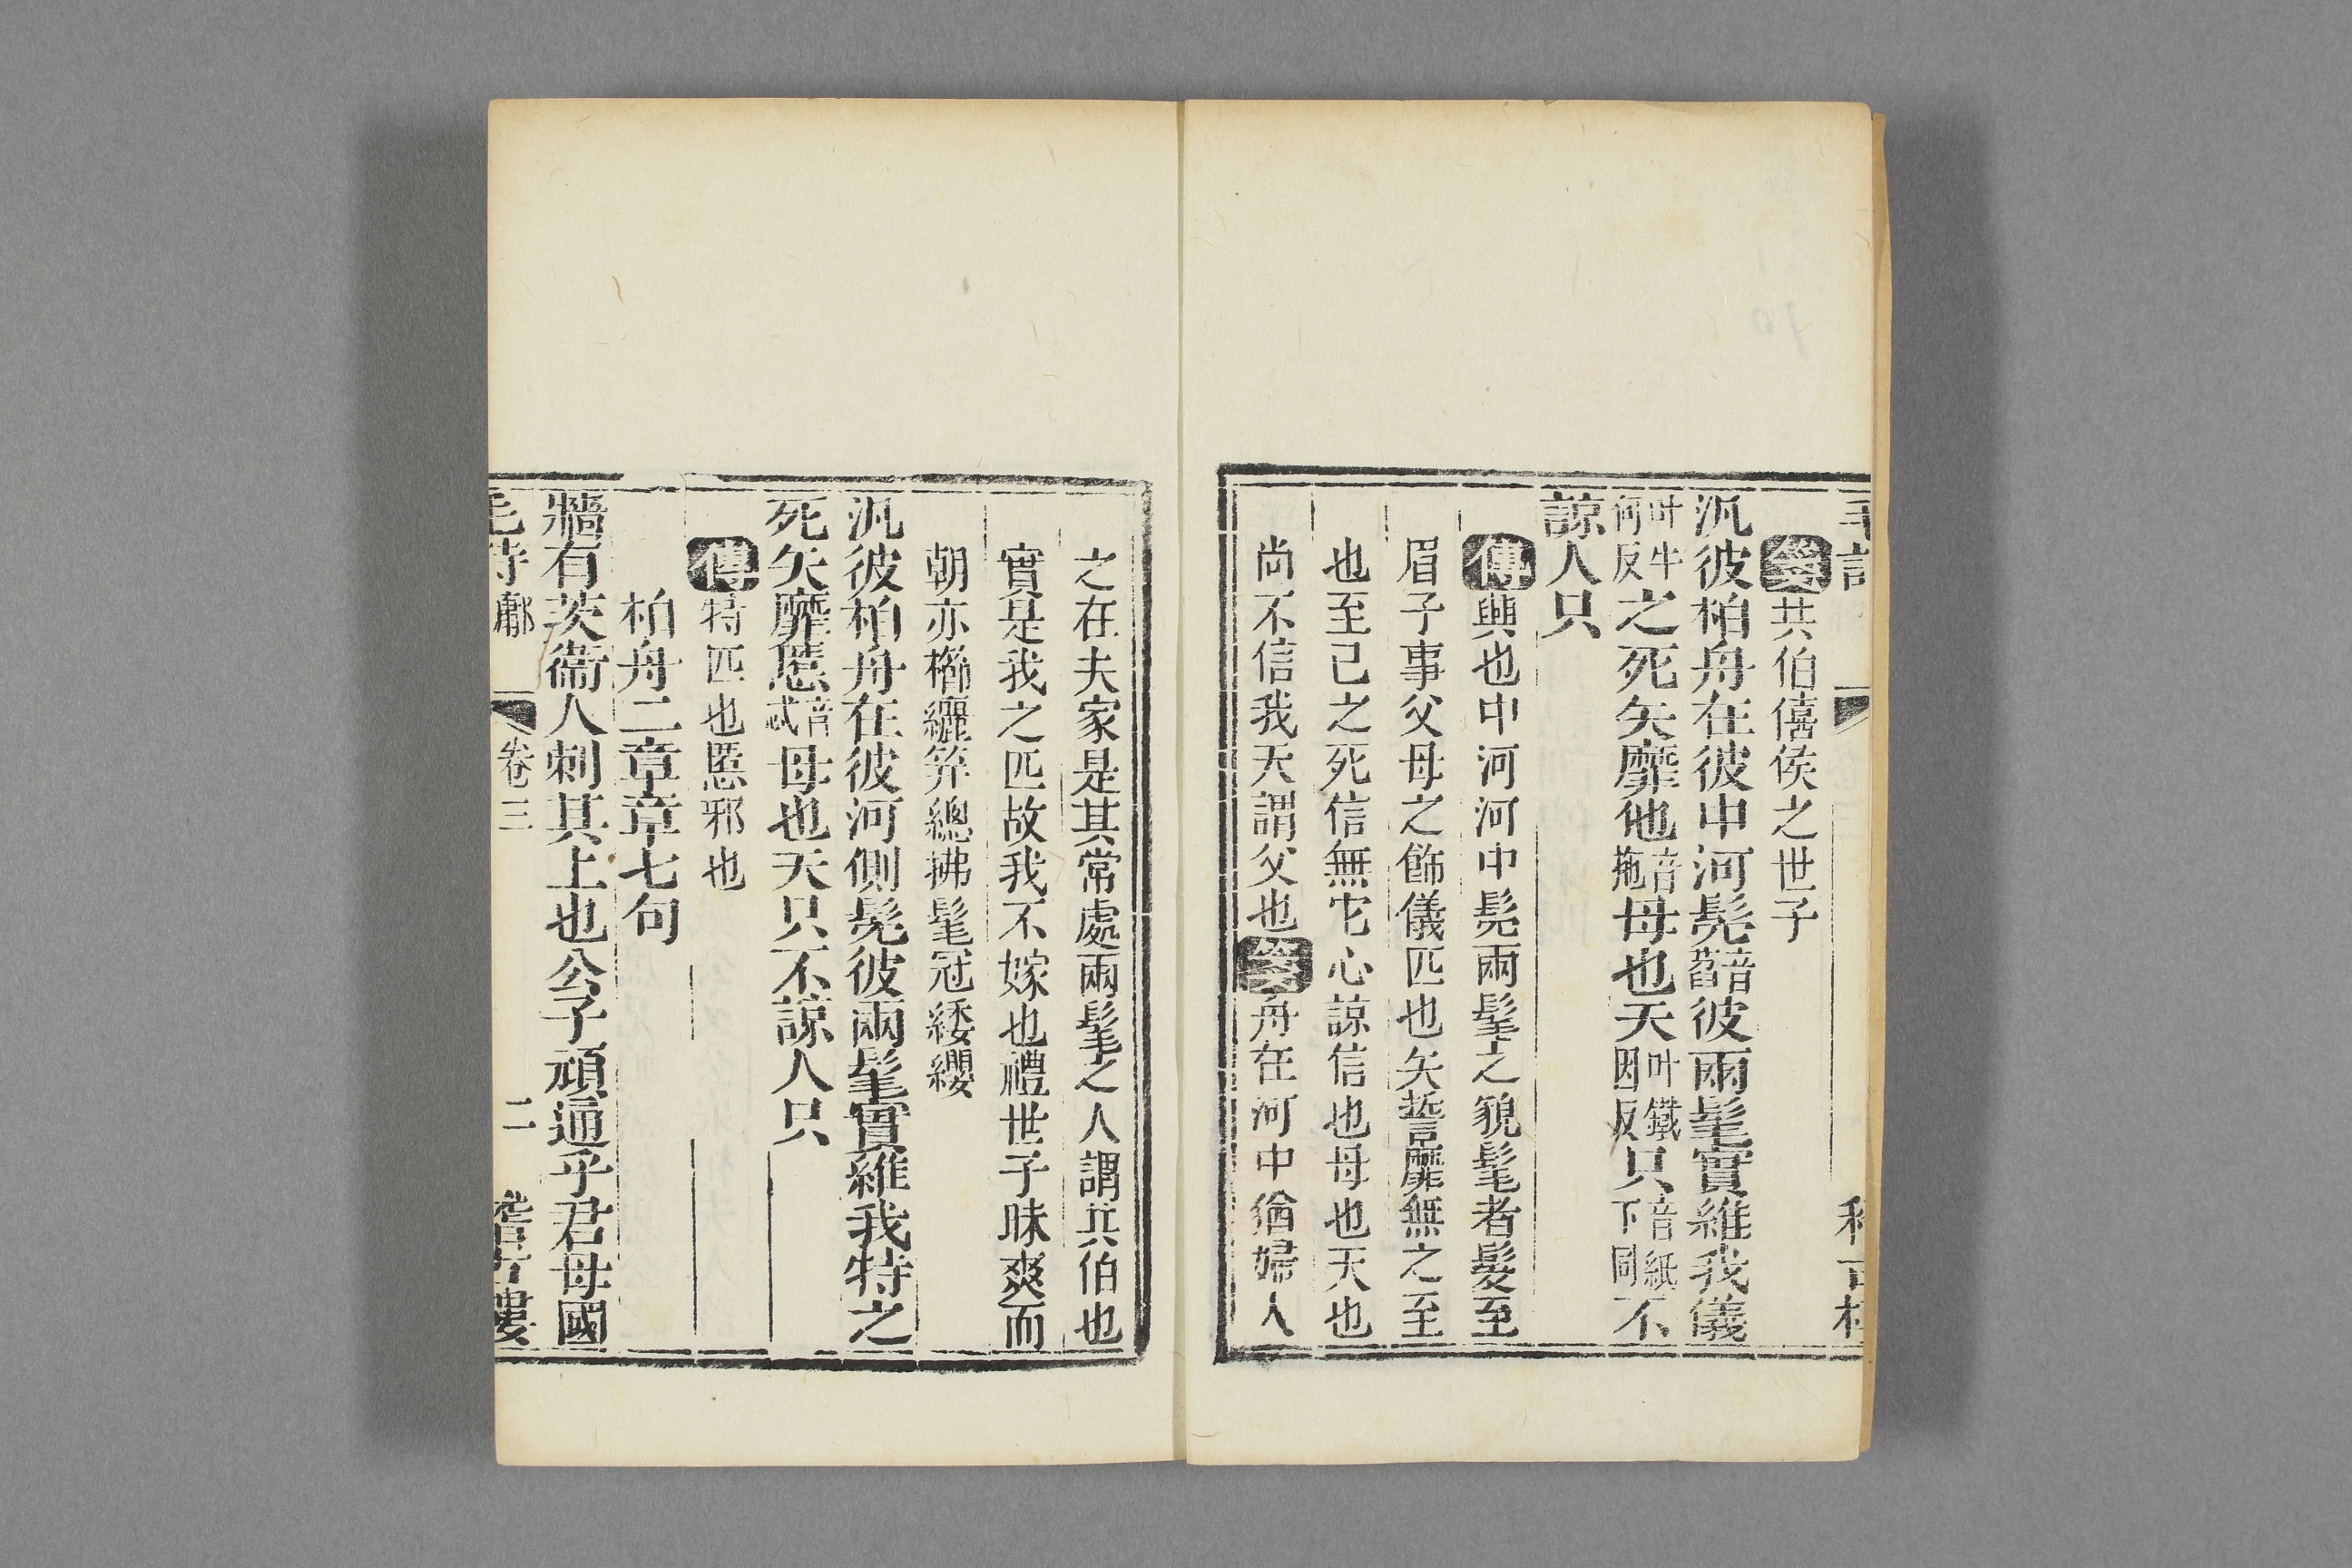 箋共伯僖侯之世子
汎彼柏舟在彼中河髧音萏彼兩髦實維我儀
叶牛何反之死矢靡他音拖母也天叶鐵因反只音紙下同不
諒人只
傳興也中河河中髧兩髦之貌髦者髮至
眉子事父母之飾儀匹也矢誓靡無之至
也至已之死信無它心諒信也母也天也
尚不信我天謂父也箋舟在河中猶婦人
之在夫家是其常處兩髦之人謂共伯也
實是我之匹故我不嫁也禮世子昧爽而
朝亦櫛纚笄總拂髦冠緌纓
汎彼柏舟在彼河側髧彼兩髦實維我特之
死矢靡慝音忒母也天只不諒人只
傳特匹也慝邪也
柏舟二章章七句
牆有茨衞人刺其上也公子頑通乎君母國
毛詩鄘 卷三 二